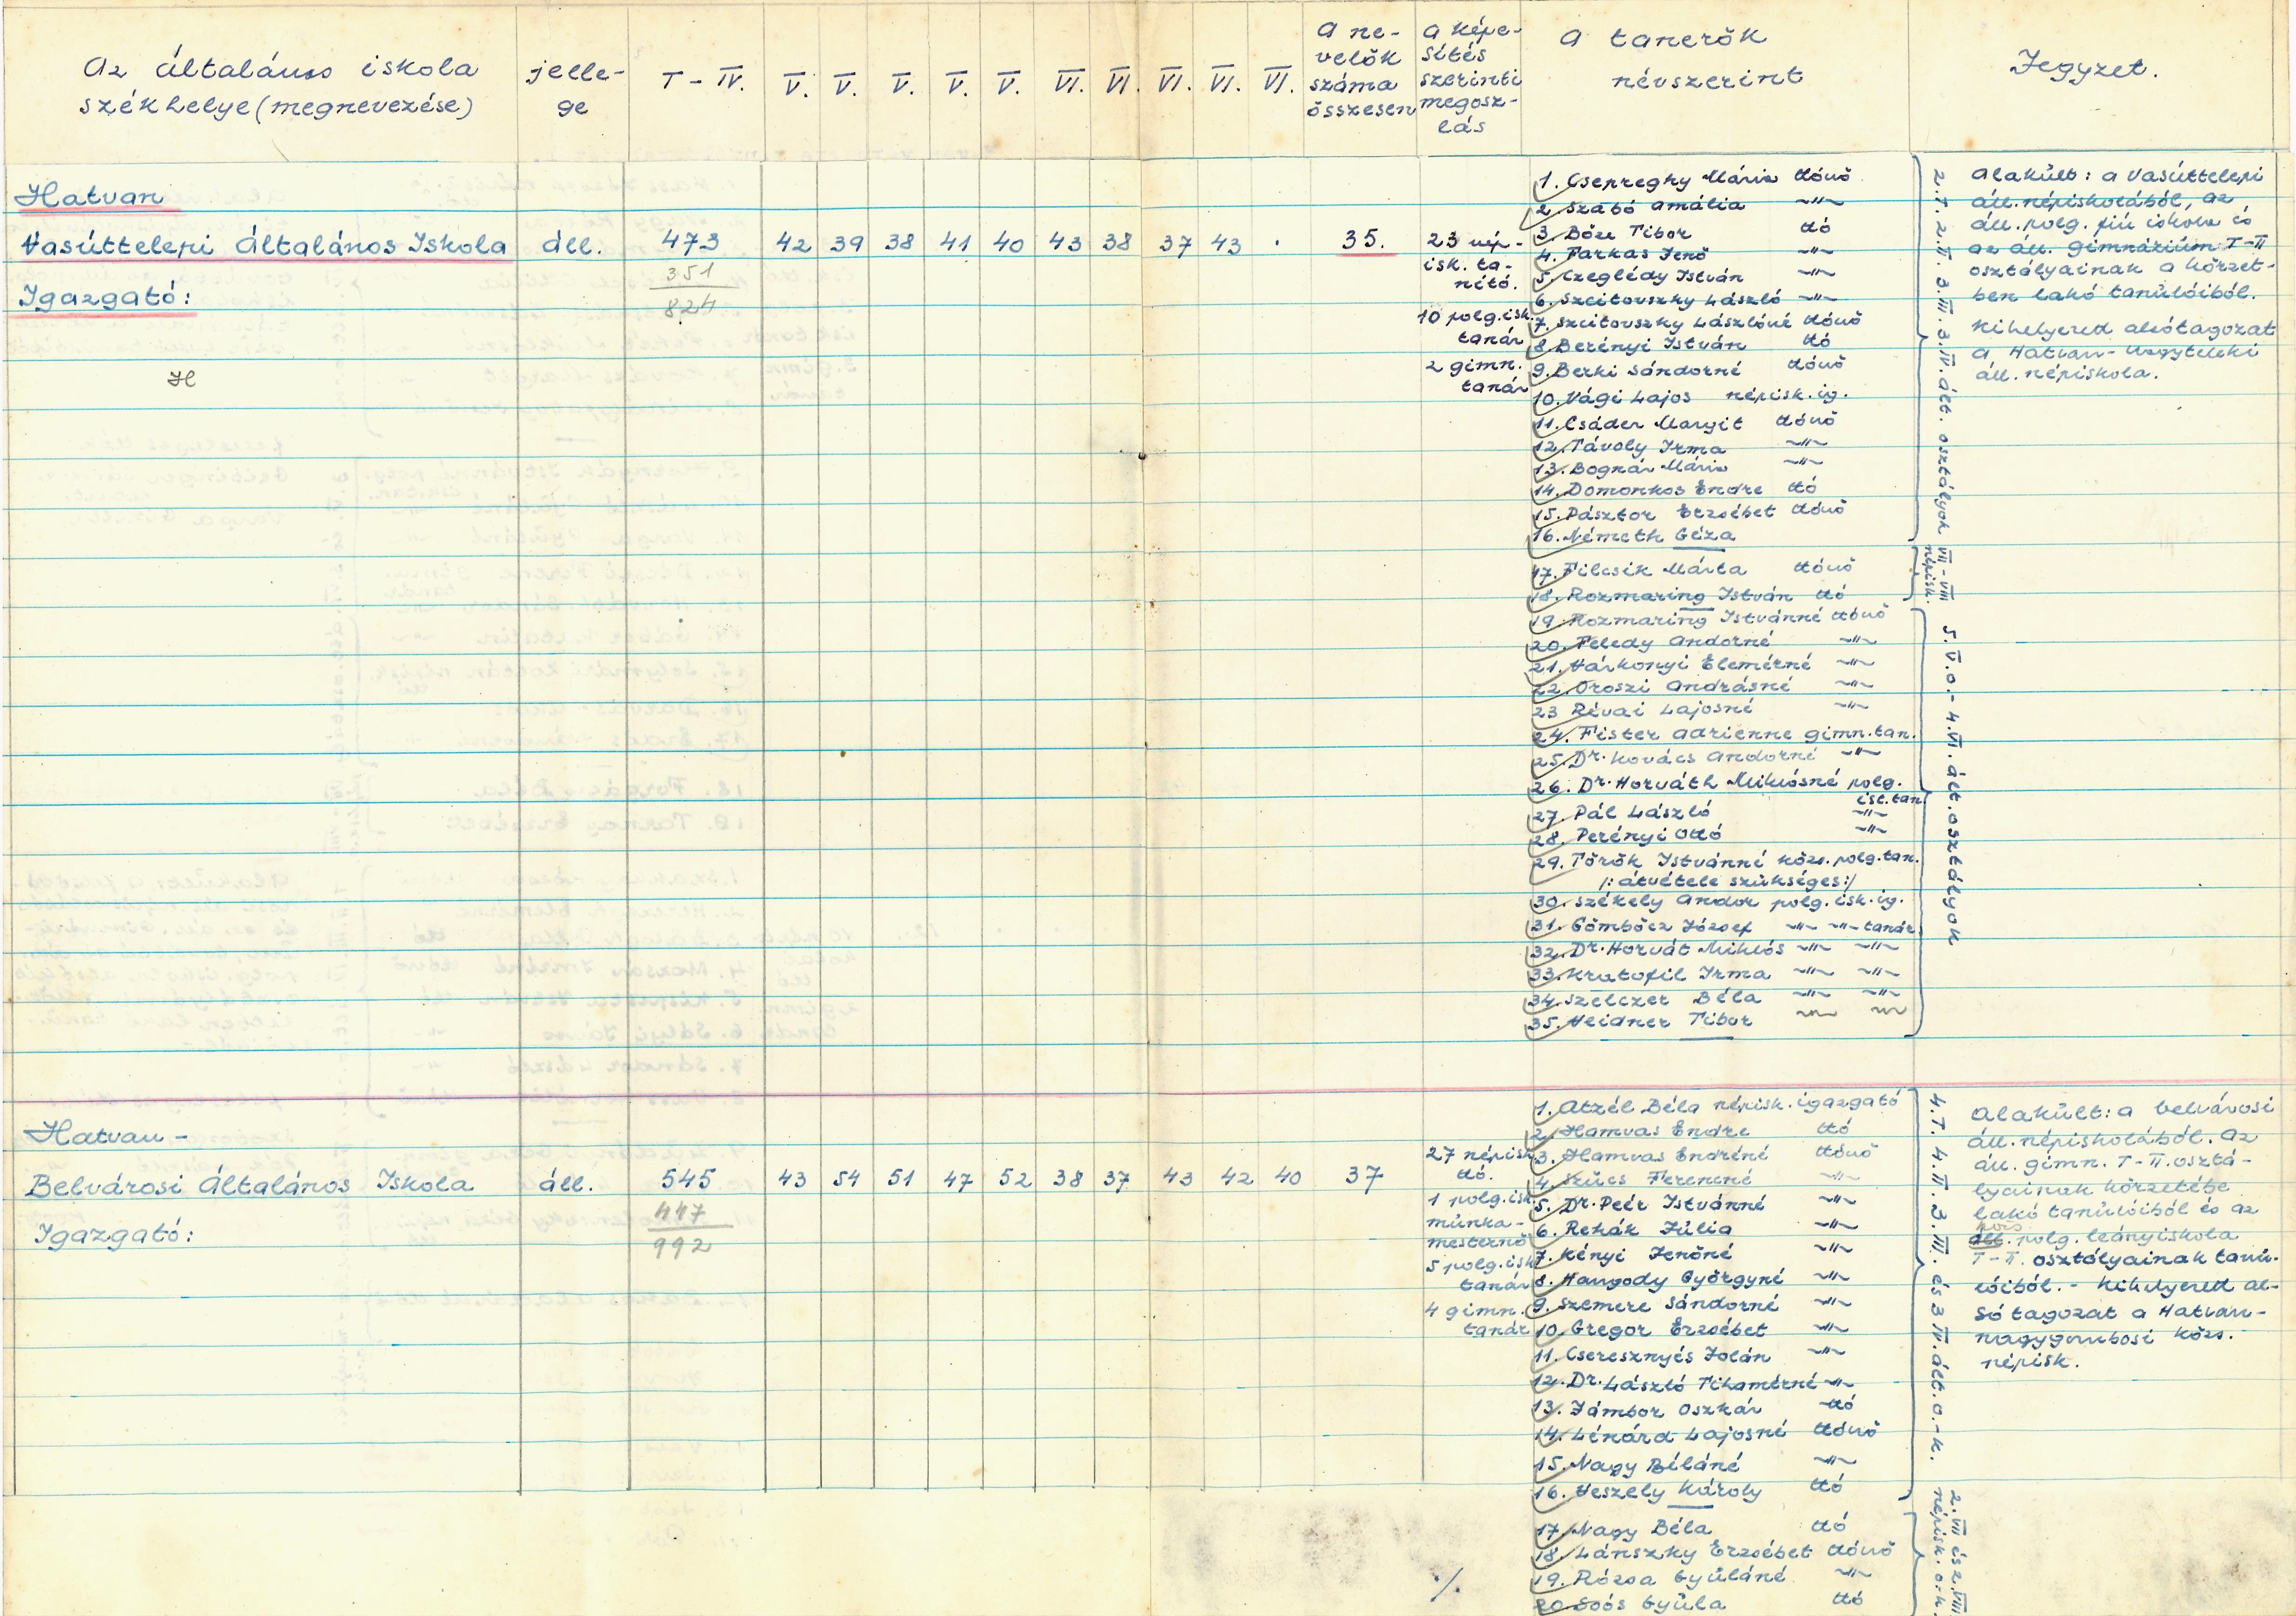 Az általános iskola székhelye (megnevezése)
jelle-
ge
I - IV.
V.
V.
V.
V.
V.
VI.
VI.
VI.
VI.
VI.
A ne-
velők
száma
összesen
A képe-
sítés
szerinti
megosz-
lás
A tanerők
névszerint
Jegyzet.
Hatvan
Vasúttelepi Általános Iskola
áll.
473
42
39
38
41
40
43
38
37
43
.
35.
351
824
Igazgató:
H
23 nép-
isk. ta-
nító.
10 polg.isk.
tanár
2 gimn.
tanár
1. Csepreghy Mária ttónő
2. Szabó Amália -"-
3. Bőze Tibor ttó
4. Farkas Jenő -"-
5. Czeglédy István -"-
6. Szcitovszky László -"-
7. Szcitovszky Lászlóné ttónő
8. Berényi István ttó
9. Berki Sándorné ttónő
10. Vági Lajos népisk. ig.
11. Csáder Margit ttónő
12. Távoly Irma -"-
13. Bognár Mária -"-
14. Domonkos Endre ttó
15. Pásztor Erzsébet ttónő
16. Németh Géza
17. Filcsik Márta ttónő
18. Rozmaring István ttó
19. Rozmaring Istvánné ttónő
20. Feledy Andorné -"-
21. Hárkonyi Elemérné -"-
22. Oroszi Andrásné -"-
23 Révai Lajosné -"-
24. Fister Adrienne gimn.tan.
25. Dr. Kovács Andorné -"-
26. Dr. Horváth Miklósné polg.
isk.tan
27. Pál László -"-
28. Perényi Ottó -"-
29. Török Istvánné közs. polg.tan.
/: átvétele szükséges:/
30. Székely Andor polg. isk. ig.
31. Gömböcz József -"- -"- tanár.
32. Dr. Horvát Miklós -"- -"-
33. Kratofil Irma -"- -"-
34. Szelczer Béla -"- -"-
35. Heidner Tibor -"- -"-
2. I. 2. II. 3. III. 3. IV. ált. osztályok
VII - VIII
népisk.
5. V. o. - 4. VI. ált. osztályok
Alakúlt: a Vasúttelepi
áll. népiskolából, az
áll. polg. fiú iskola és
az áll. Gimnázium I-II
osztályainak a körzet-
ben lakó tanúlóiból.
Kihelyezed alsótagozat
a Hatvan-
áll. népiskola.
Hatvan -
Belvárosi Általános Iskola
áll.
545
43
54
51
47
52
38
37
43
42
40
37
447
992
Igazgató:
27 népisk
ttó.
1 polg.isk.
múnka-
mesternő
5 polg.isk
tanár
4 gimn.
tanár
1. Atzél Béla népisk. igazgató
2. Hamvas Endre ttó
3. Hamvas Endréné ttónő
4. Szűcs Ferencné -"-
5. Dr. Peér Istvánné -"-
6. Rehák Júlia -"-
7. Kényi Jenőné -"-
8. Hangody Györgyné -"-
9. Szemere Sándorné -"-
10. Gregor Erzsébet -"-
11. Cseresznyés Jolán -"-
12. Dr. László Tihamérné -"-
13. Jámbor Oszkár ttó
14. Lénárd Lajosné ttónő
15. Nagy Béláné -"-
16. Heszely Károly ttó
17. Nagy Béla ttó
18. Lánszky Erzsébet ttónő
19. Rózsa Gyúláné -"-
20 Soós Gyúla ttó
./.
4. I. 4. II. 3. III. és 3 IV. ált. o.-k.
2. VII és 2. VIII
népisk. o.-k.
Alakúlt: a belvárosi
áll. népiskolából. Az
áll. gimn. I-II. osztá-
lyainak körzetébe
lakó tanúlóiból és az
polg. leányiskola
I-II. osztályainak tanú-
lóiból. - Kihelyezed al-
só tagozat a Hatvan-
nagygombosi közs.
népisk.